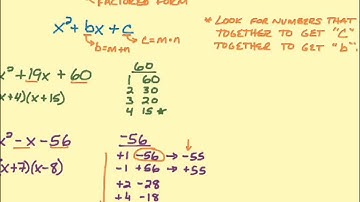 FACTORED FORM
x² + bx + c
b=m+n
c=m·n
* LOOK FOR NUMBERS THAT
TOGETHER TO GET "C"
TOGETHER TO GET "b".
x² + 19x + 60
x+4)(x+15)
60
1 60
2 30
3 20
4 15 *
x² - x - 56
x+7)(x-8)
-56
+1 -56 → -55
-1 +56 → +55
+2 -28
+4 -18